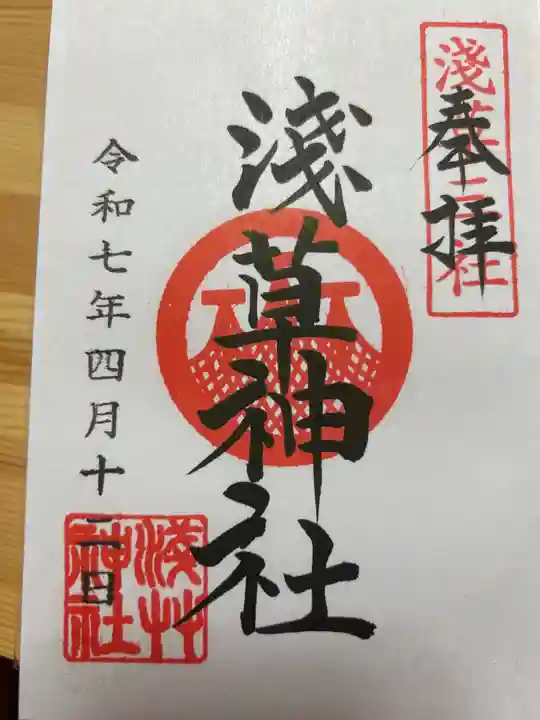 奉拝
淺草三社
淺草神社
令和七年四月十二日
淺草神社